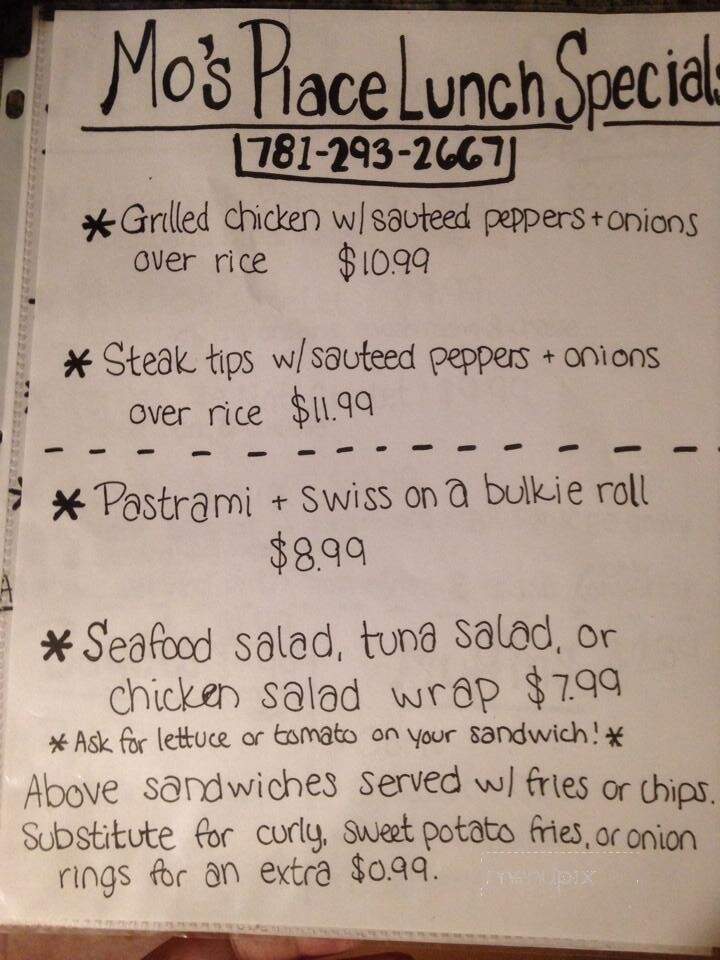 Mo's Place Lunch Specials
781-293-2667
* Grilled chicken w/ sauteed peppers + onions
over rice $10.99
* Steak tips w/ sauteed peppers + onions
over rice $11.99
* Pastrami + swiss on a bulkie roll
$8.99
* Seafood salad, tuna salad, or
chicken salad wrap $7.99
* Ask for lettuce or tomato on your sandwich! *
Above sandwiches served w/ fries or chips.
Substitute for curly, sweet potato fries, or onion
rings for an extra $0.99.
menupix